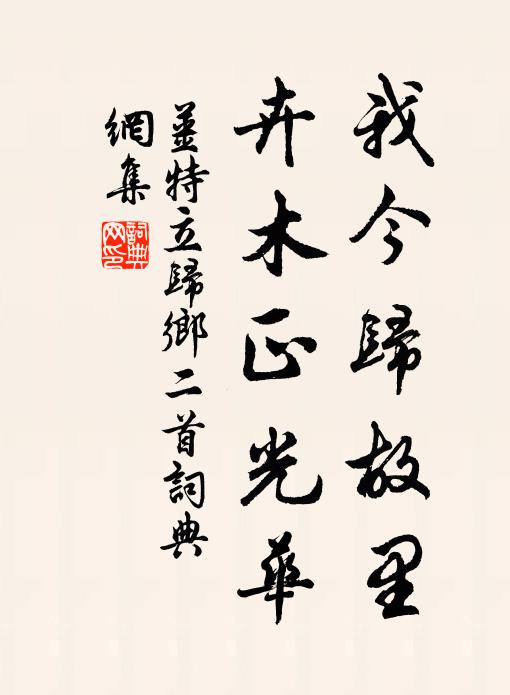 我今歸故里
卉木正光華
姜特立歸鄉二首詞典
網集
詞典網印